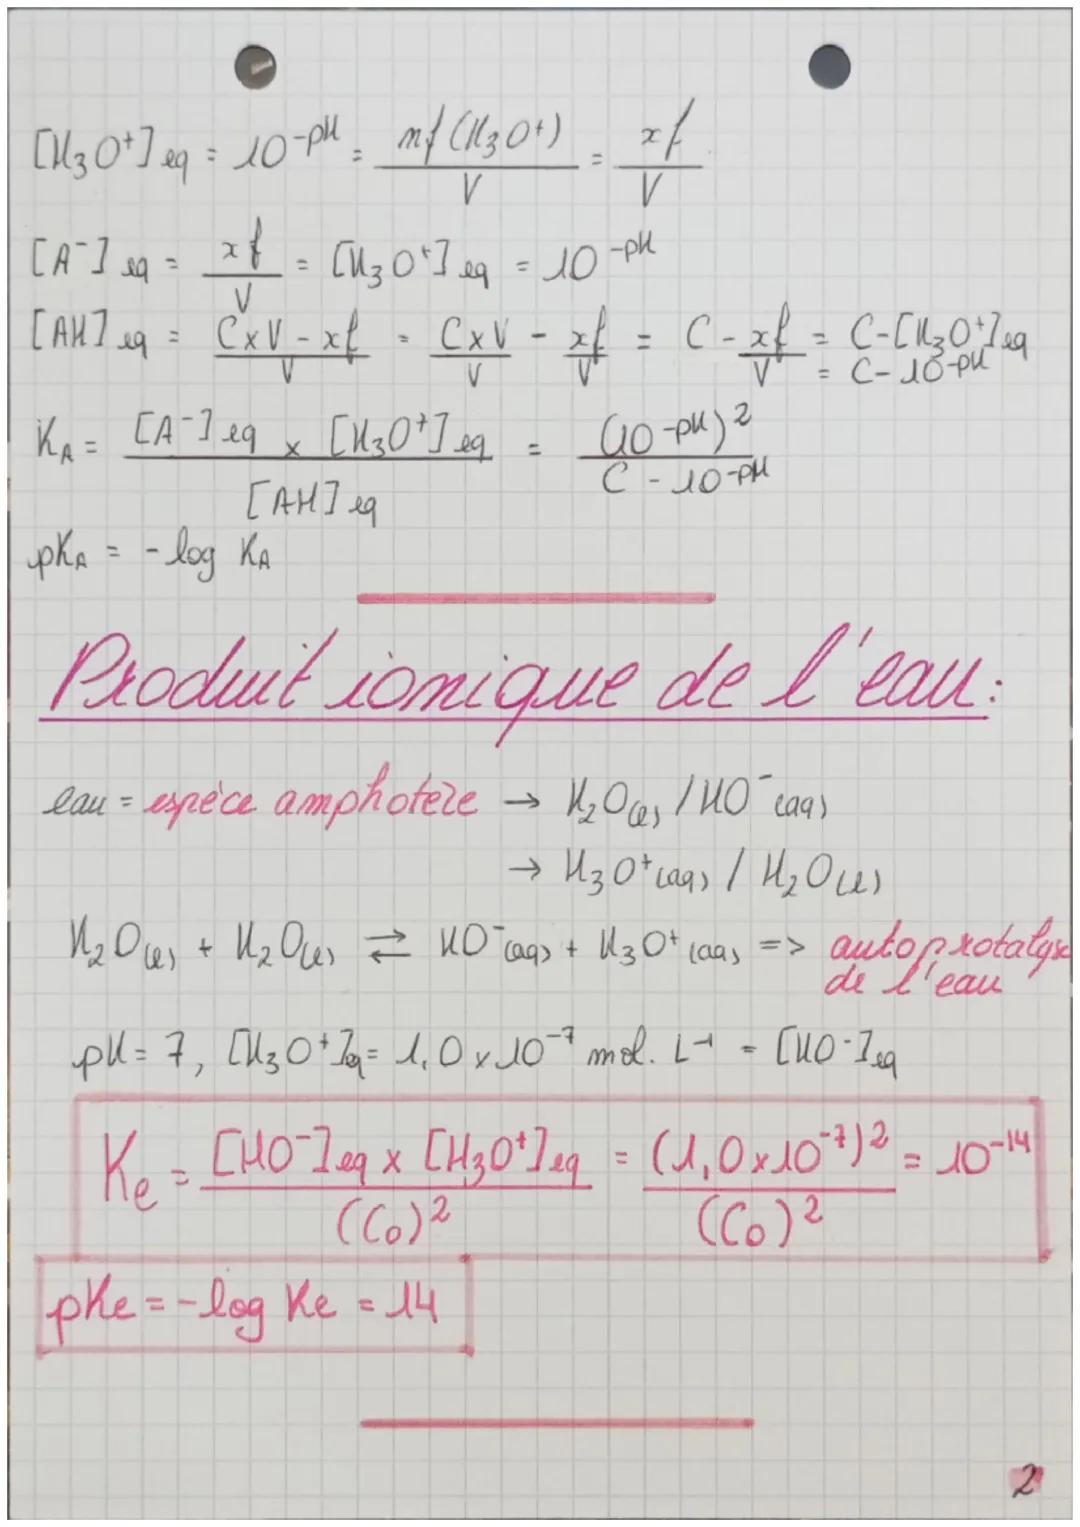 [H₃O⁺]eq = 10^-pH = nf(H₃O⁺)/V = xf/V
[A⁻]eq = xf/V = [H₃O⁺]eq = 10^-pH
[AH]eq = (C×V - xf)/V = C×V/V - xf/V = C - xf/V = C-[H₃O⁺]eq
= C-10^-pH
KA = [A⁻]eq × [H₃O⁺]eq / [AH]eq = (10^-pH)²/(C - 10^-pH)
pKA = -log KA
Produit ionique de l'eau:
eau = espèce amphotère → H₂O(l) / HO⁻(aq)
→ H₃O⁺(aq) / H₂O(l)
H₂O(l) + H₂O(l) ⇄ HO⁻(aq) + H₃O⁺(aq) => autoprotolyse
de l'eau
pH = 7, [H₃O⁺]eq = 1,0×10⁻⁷ mol.L⁻¹ = [HO⁻]eq
Ke = [HO⁻]eq × [H₃O⁺]eq / (C₀)² = (1,0×10⁻⁷)²/(C₀)² = 10⁻¹⁴
pKe = -log Ke = 14
2